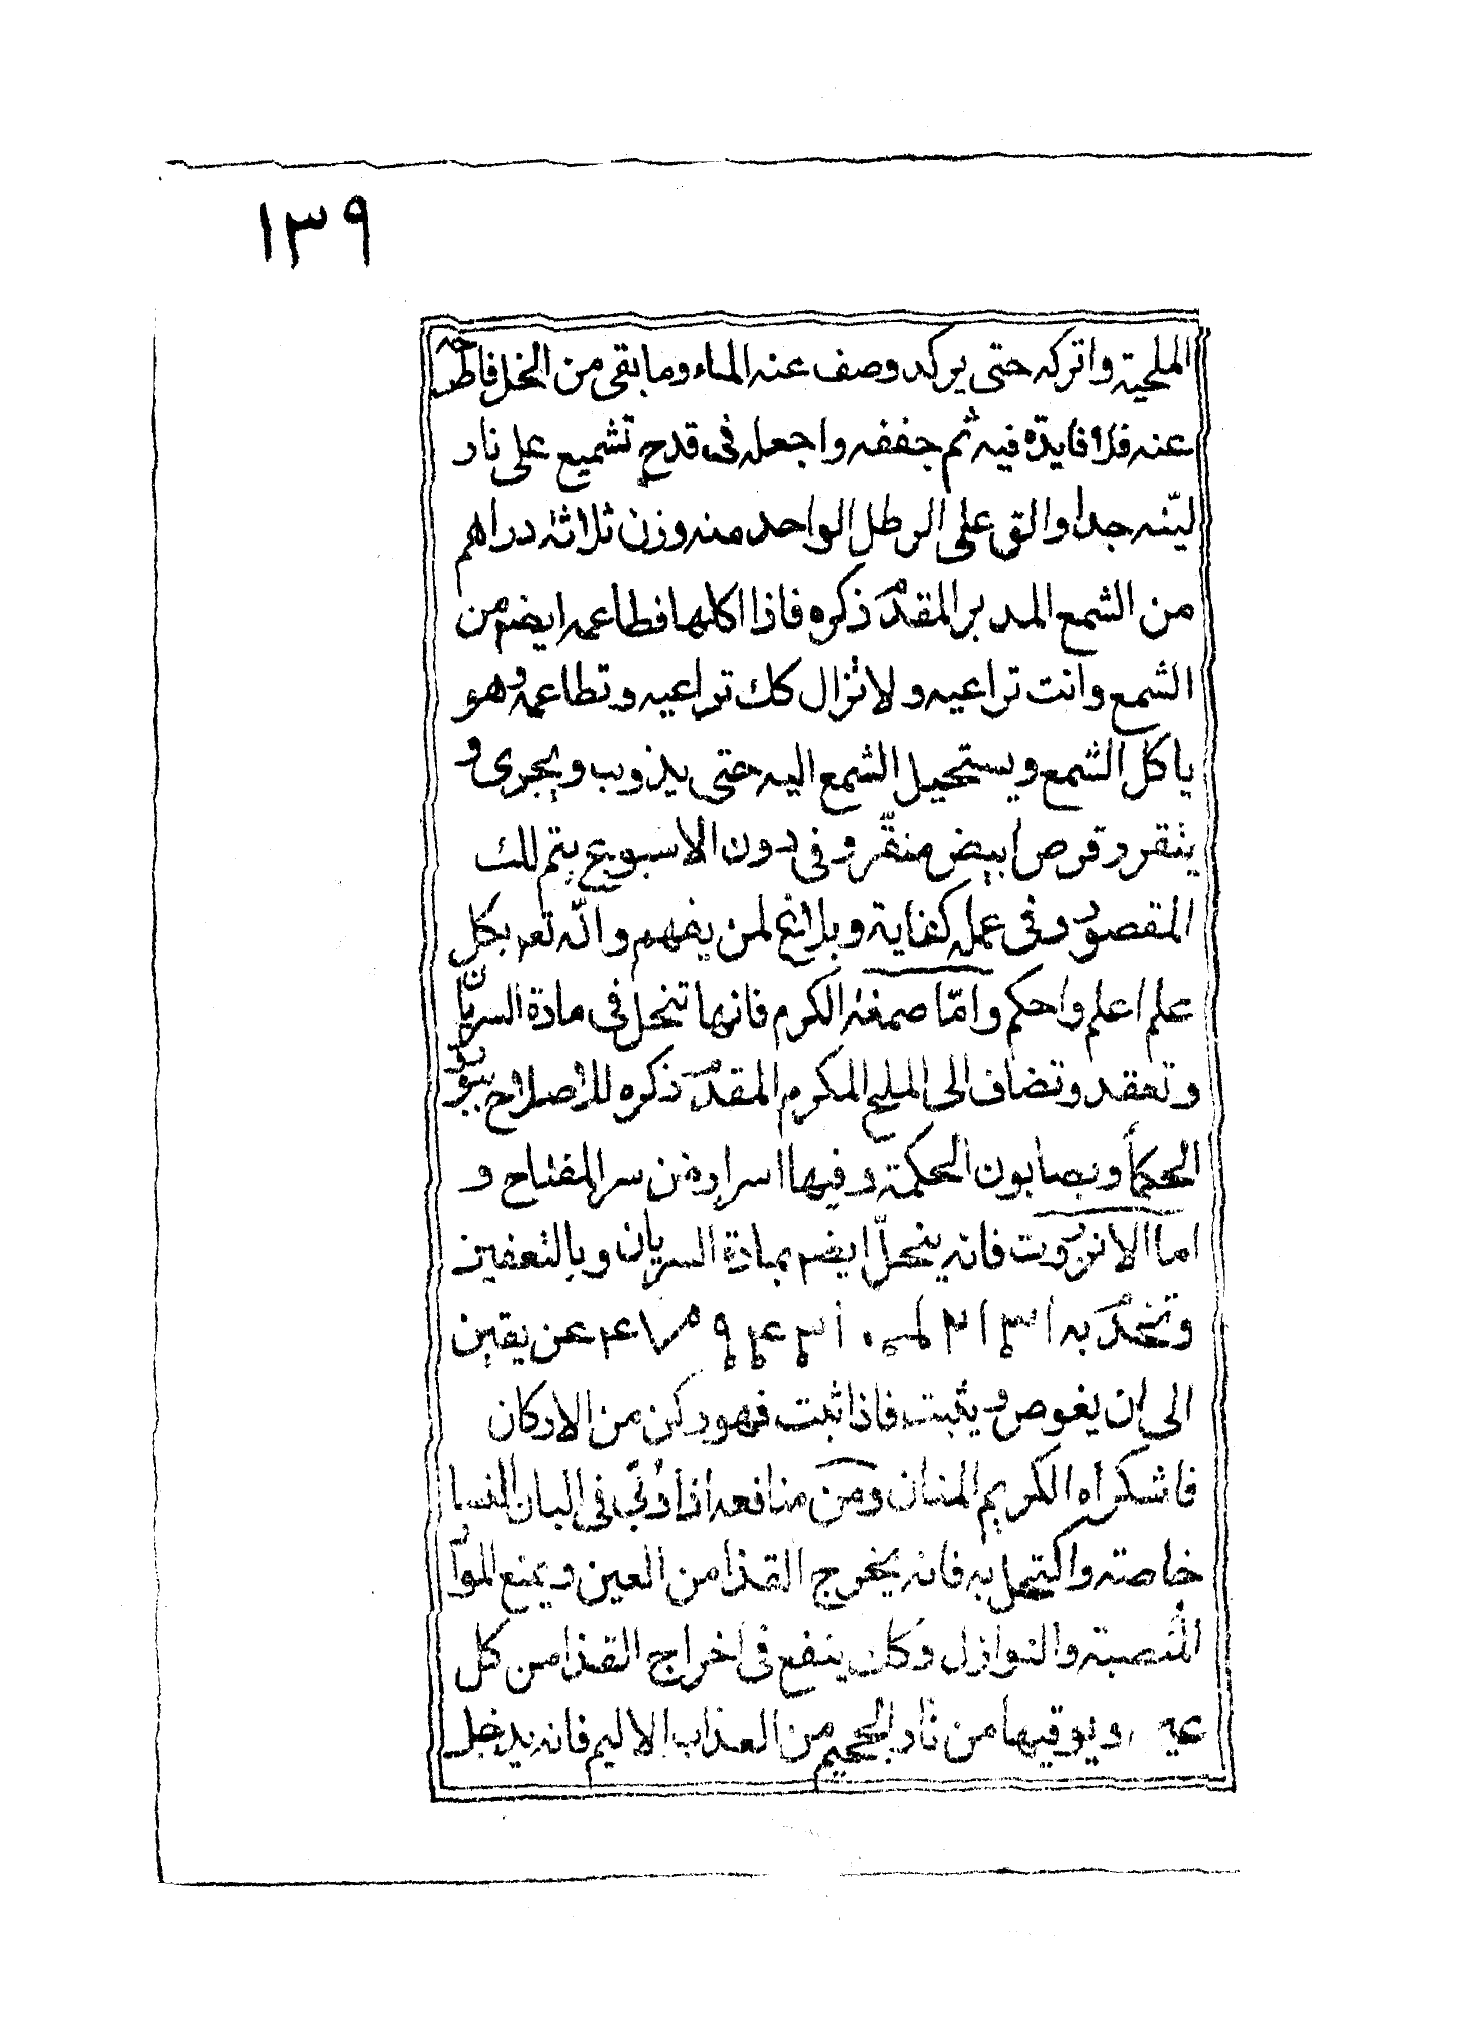 ١٣٩
الملحية واتركه حتى يركد وصف عنه الماء وما بقى من الخل فاطرحه
عنه فلا فايدة فيه ثم جففه واجعله فى قدح تشميع على نار
ليّنه جدا والق على الرطل الواحد منه وزن ثلاثة دراهم
من الشمع المدبر المقدم ذكره فاذا اكلها فطاعمه ايضا من
الشمع وانت تراعيه ولا تزال كك تراعيه وتطاعمه وهو
ياكل الشمع ويستحيل الشمع اليه حتى يذوب ويجرى و
ينقر وقرص ابيض منقّر وفى دون الاسبوع يتم لك
المقصود وفى عمله كفاية وبلاغ لمن يفهم والله تعم بكل
علم اعلم واحكم وامّا صمغة الكرم فانها تنحل فى مادة السريان
وتعقد وتضاف الى الملح المكرم المقدم ذكره للاصلاح ببورق
الحكمأ وبصابون الحكمة وفيها اسرار من سر المفتاح و
اما الانزروت فانه ينحلّ ايضم بمادة السريان وبالتعفين
عن يقين
الى ان يغوص ويثبت فاذا ثبت فهو ركن من الاركان
فاشكر الله الكريم المنان ومن منافعه اذا دبّى فى البان النسا
خاصته واكتحل به فانه يخرج القذا من العين ويمنع المواد
المنصبته والنوازل وكك ينفع فى اخراج القذا من كل
ويوقيها من نار الجحيم من العذاب الاليم فانه يدخل